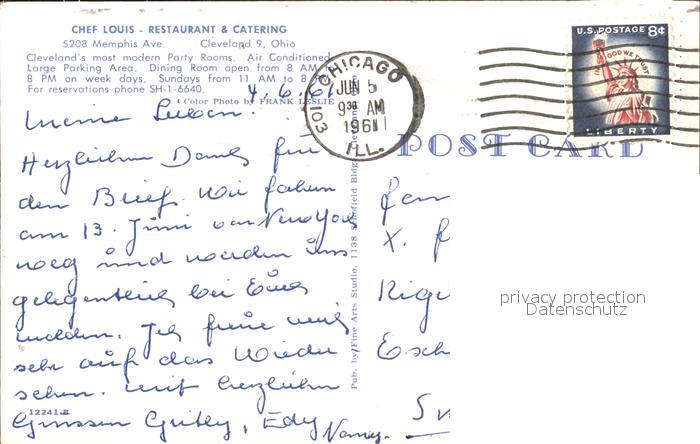 CHEF LOUIS - RESTAURANT & CATERING
5208 Memphis Ave. Cleveland 9, Ohio
Cleveland's most modern Party Rooms. Air Conditioned
Large Parking Area. Dining Room open from 8 AM
8 PM on week days. Sundays from 11 AM to 8
For reservations phone SH-1-6640.
(Color Photo by FRANK LESLIE
4.6.61
Meine Lieben.
Herzlichen Dank für
den Brief. Wir fahren
am 13. Juni von New York
weg und werden uns
gelegentlich bei Euch
melden. Ich freue mich
sehr auf das Wieder
sehen. Mit herzlichen
12241-B
Grüssen Gritly, Edy
Nancy.
Pub. by Fine Arts Studio, 1138 Bldg.
CHICAGO
JUN 5
9 30 AM
1961
ILL.
103
U.S. POSTAGE 8¢
IN GOD WE TRUST
LIBERTY
POST CARD
Fam
X. F
Esch
privacy protection
Datenschutz